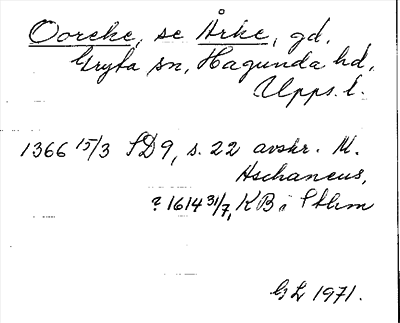 Ooreke, se Årke, gd,
Gryta sn, Hagunda hd,
Upps. l.
1366 15/3 SD9, s. 22 avskr. M.
Aschaneus,
? 1614 31/7, KB i Sthm
GL 1971.